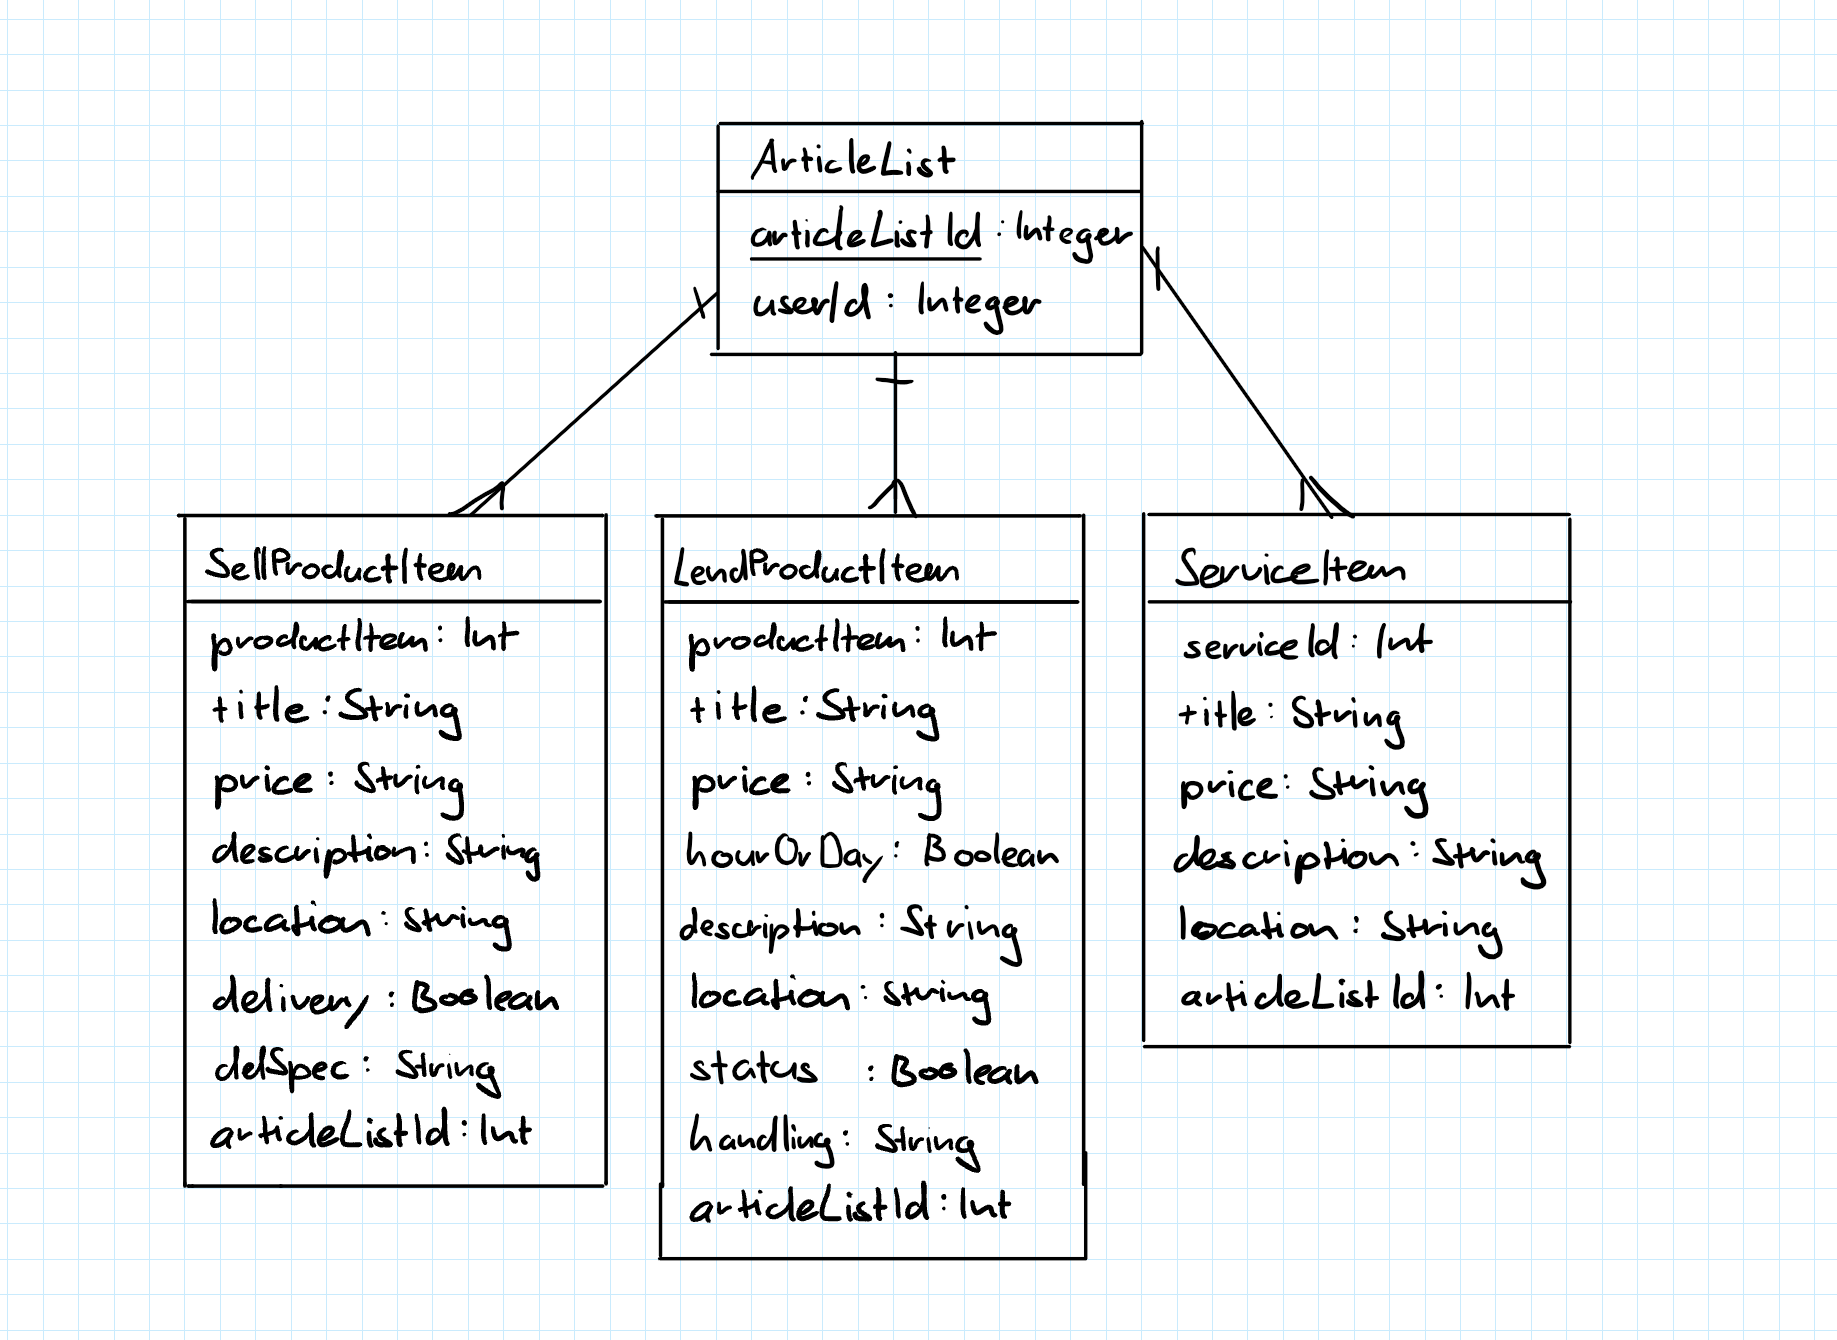 ArticleList
articleListId : Integer
userId : Integer
SellProductItem
productItem : Int
title : String
price : String
description : String
location : String
delivery : Boolean
delSpec : String
articleListId : Int
LendProductItem
productItem : Int
title : String
price : String
hourOrDay : Boolean
description : String
location : String
status : Boolean
handling : String
articleListId : Int
ServiceItem
serviceId : Int
title : String
price : String
description : String
location : String
articleListId : Int